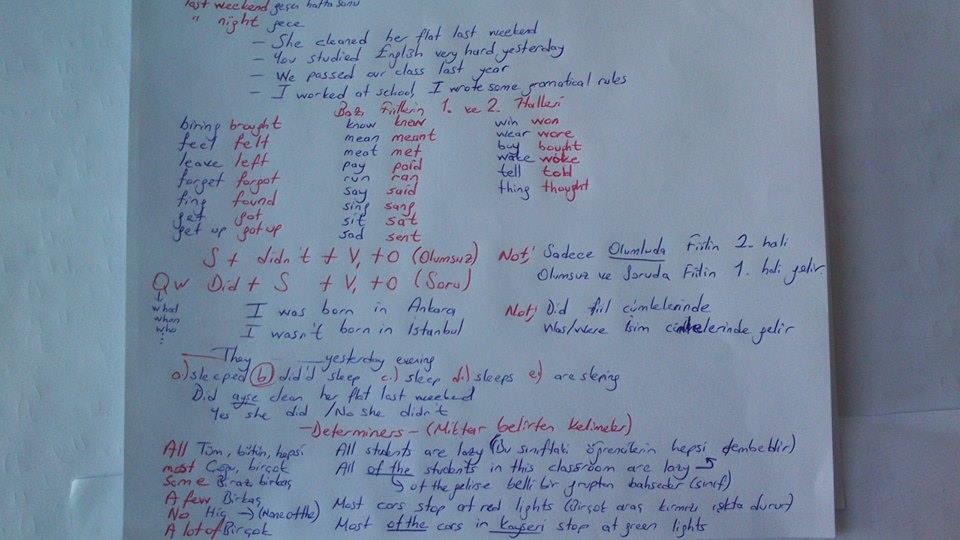 last weekend geçen hafta sonu
" night gece
- She cleaned her flat last weekend
- You studied English very hard yesterday
- We passed our class last year
- I worked at school, I wrote some gramatical rules
Bazı Fiillerin 1. ve 2. Halleri
biring brought know knew win won
feel felt mean meant wear wore
leave left meat met buy bought
forget forgot pay paid wake woke
fing found run ran tell told
get got say said thing thought
get up got up sing sang
sit sat
sad sent
S + didn't + V1 + O (Olumsuz) Not; Sadece Olumluda Fiilin 2. hali
Olumsuz ve Soruda Fiilin 1. hali gelir.
Qw Did + S + V1 + O (Soru)
what I was born in Ankara Not; Did fiil cümlelerinde
whan I wasn't born in Istanbul Was/Were isim cümlelerinde gelir
who
They yesterday evening
a) sleeped b) did'd sleep c.) sleep d.) sleeps e) are sleping
Did ayşe clean her flat last weekend
Yes she did / No she didn't
- Determiners - (Miktar belirten kelimeler)
All Tüm, bütün, hepsi All students are lazy (Bu sınıftaki öğrencilerin hepsi tembeldir)
most Çoğu, birçok All of the students in this classroom are lazy
Some Biraz birkaç of the gelirse belli bir gruptan bahseder (sınıf)
A few Birkaç
No Hiç → (None of the) Most cars stop at red lights (Birçok araç kırmızı ışıkta durur)
A lot of Birçok Most of the cars in Kayseri stop at green lights